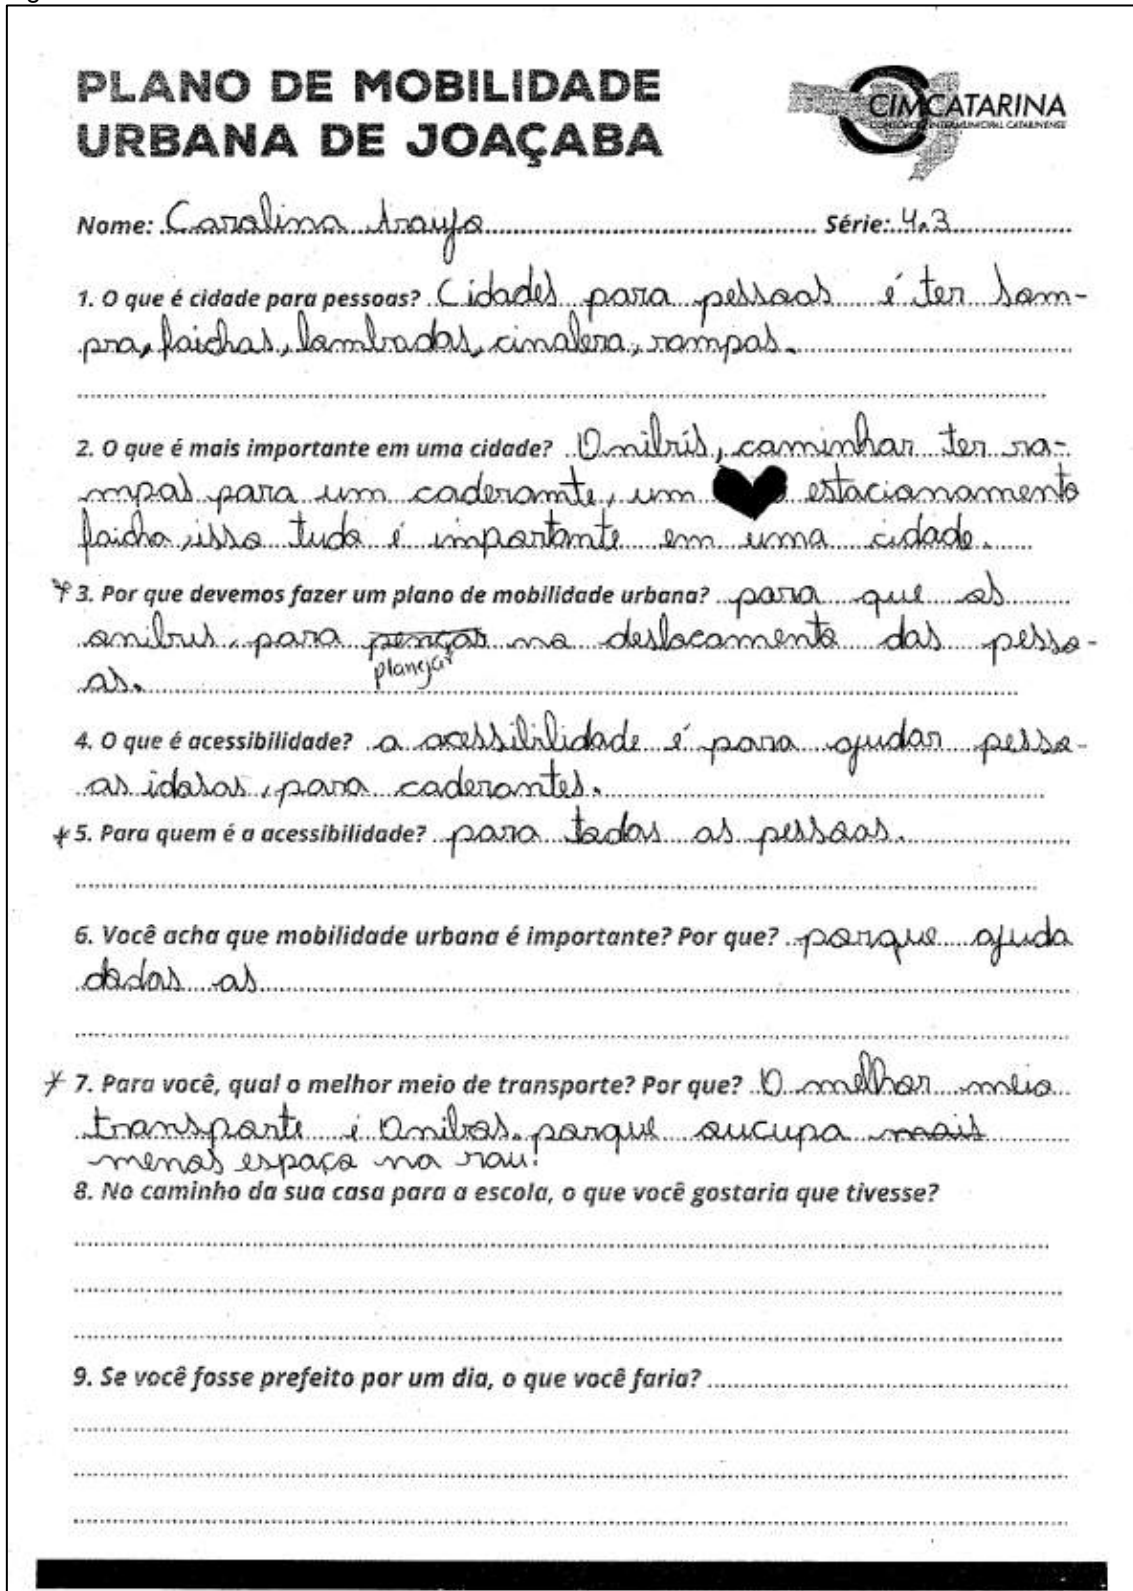 PLANO DE MOBILIDADE
URBANA DE JOAÇABA
CIMCATARINA
CONSÓRCIO INTERMUNICIPAL CATARINENSE
Nome: Caralina Araujo Série: 4.3
1. O que é cidade para pessoas? Cidades para pessoas é ter som-
pra, faichas, lambradas, cinalera, rampas.
2. O que é mais importante em uma cidade? Onibrís, caminhar ter ra-
mpas para um caderante, um estacionamento
faicha, isso tudo é importante em uma cidade.
3. Por que devemos fazer um plano de mobilidade urbana? para que os
onibrus, para pençar no deslocamento das pesso-
planejar
as.
4. O que é acessibilidade? a acessibilidade é para ajudar pesso-
as idosas, para caderantes.
5. Para quem é a acessibilidade? para todas as pessoas.
6. Você acha que mobilidade urbana é importante? Por que? porque ajuda
dodas as
7. Para você, qual o melhor meio de transporte? Por que? O melhor meio
transporte é Onibos. porque oucupa mais
menos espaço na rau!
8. No caminho da sua casa para a escola, o que você gostaria que tivesse?
9. Se você fosse prefeito por um dia, o que você faria?